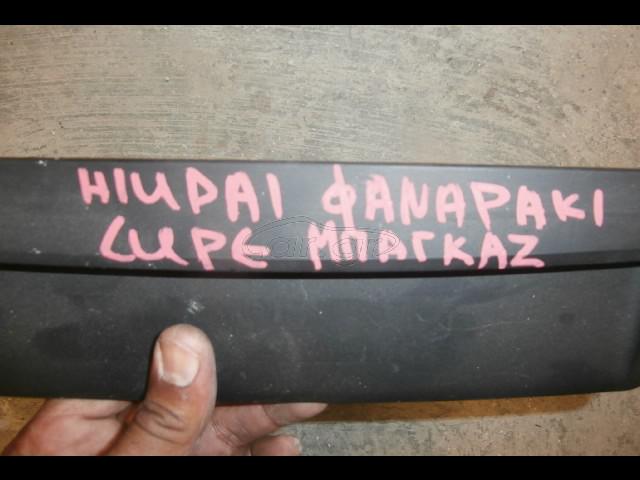 HIUDAI ΦΑΝΑΡΑΚΙ
CUPE ΜΠΑΓΚΑΖ